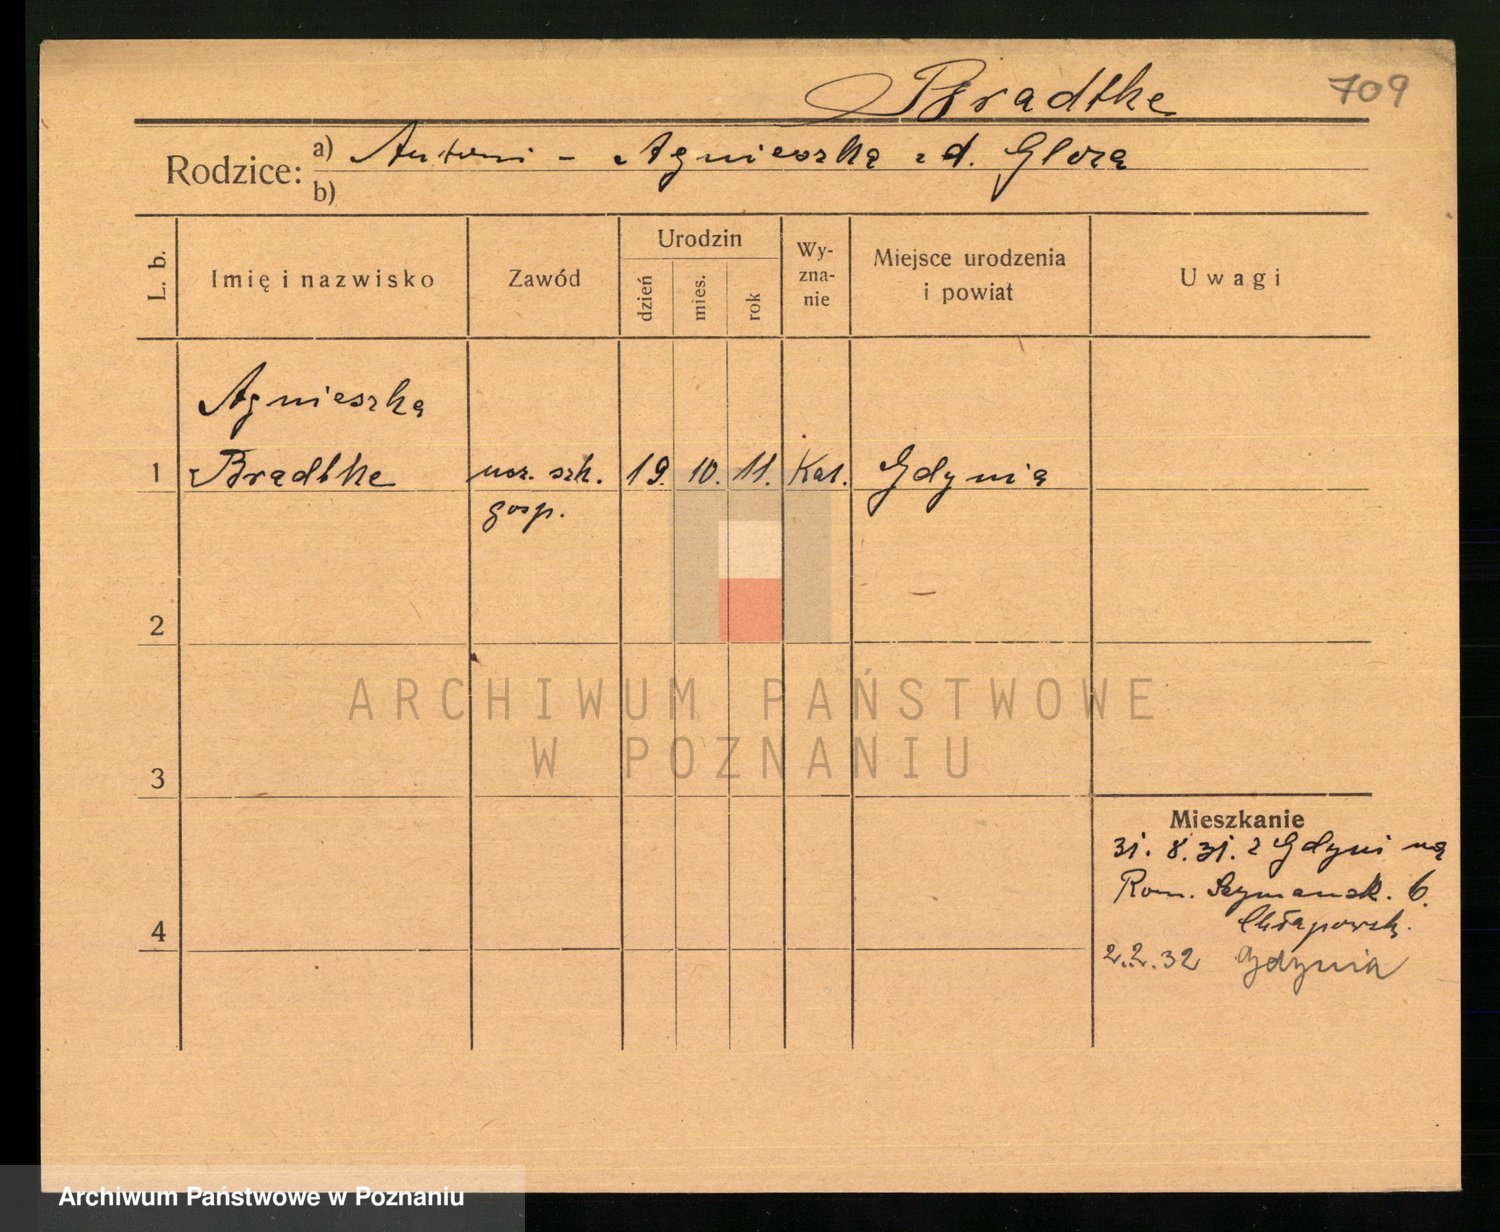 Bradtke 709
Rodzice: a) Antoni - Agnieszka z d. Glora
b)
L. b.
Imię i nazwisko
Zawód
Urodzin
dzień
mies.
rok
Wy-
zna-
nie
Miejsce urodzenia
i powiat
Uwagi
Agnieszka
1 Bradtke ucz. szk. 19. 10. 11. Kat. Gdynia
gosp.
2
3
4
ARCHIWUM PAŃSTWOWE
W POZNANIU
Mieszkanie
31. 8. 31. z Gdyni na
Rom. Szymansk. 6.
Chłapowsk.
2.2.32 Gdynia
Archiwum Państwowe w Poznaniu